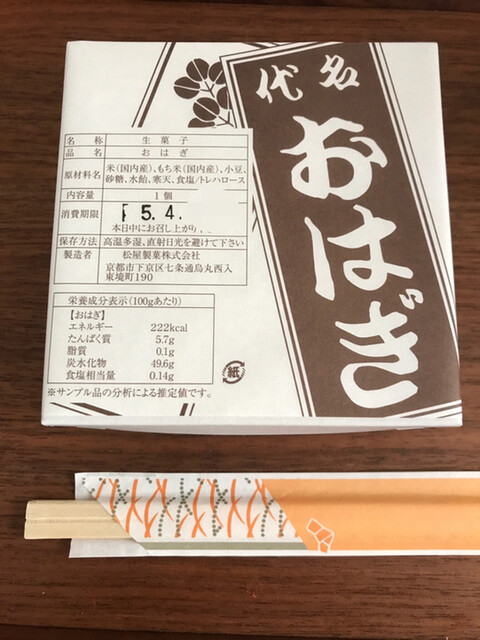 名代
おはぎ
名称 生菓子
品名 おはぎ
原材料名 米(国内産)、もち米(国内産)、小豆、
砂糖、水飴、寒天、食塩/トレハロース
内容量 1個
消費期限 5.4.
本日中にお召し上がり
保存方法 高温多湿、直射日光を避けて下さい
製造者 松屋製菓株式会社
京都市下京区七条通烏丸西入
東境町190
栄養成分表示(100gあたり)
【おはぎ】
エネルギー 222kcal
たんぱく質 5.7g
脂質 0.1g
炭水化物 49.6g
食塩相当量 0.14g
紙
※サンプル品の分析による推定値です。